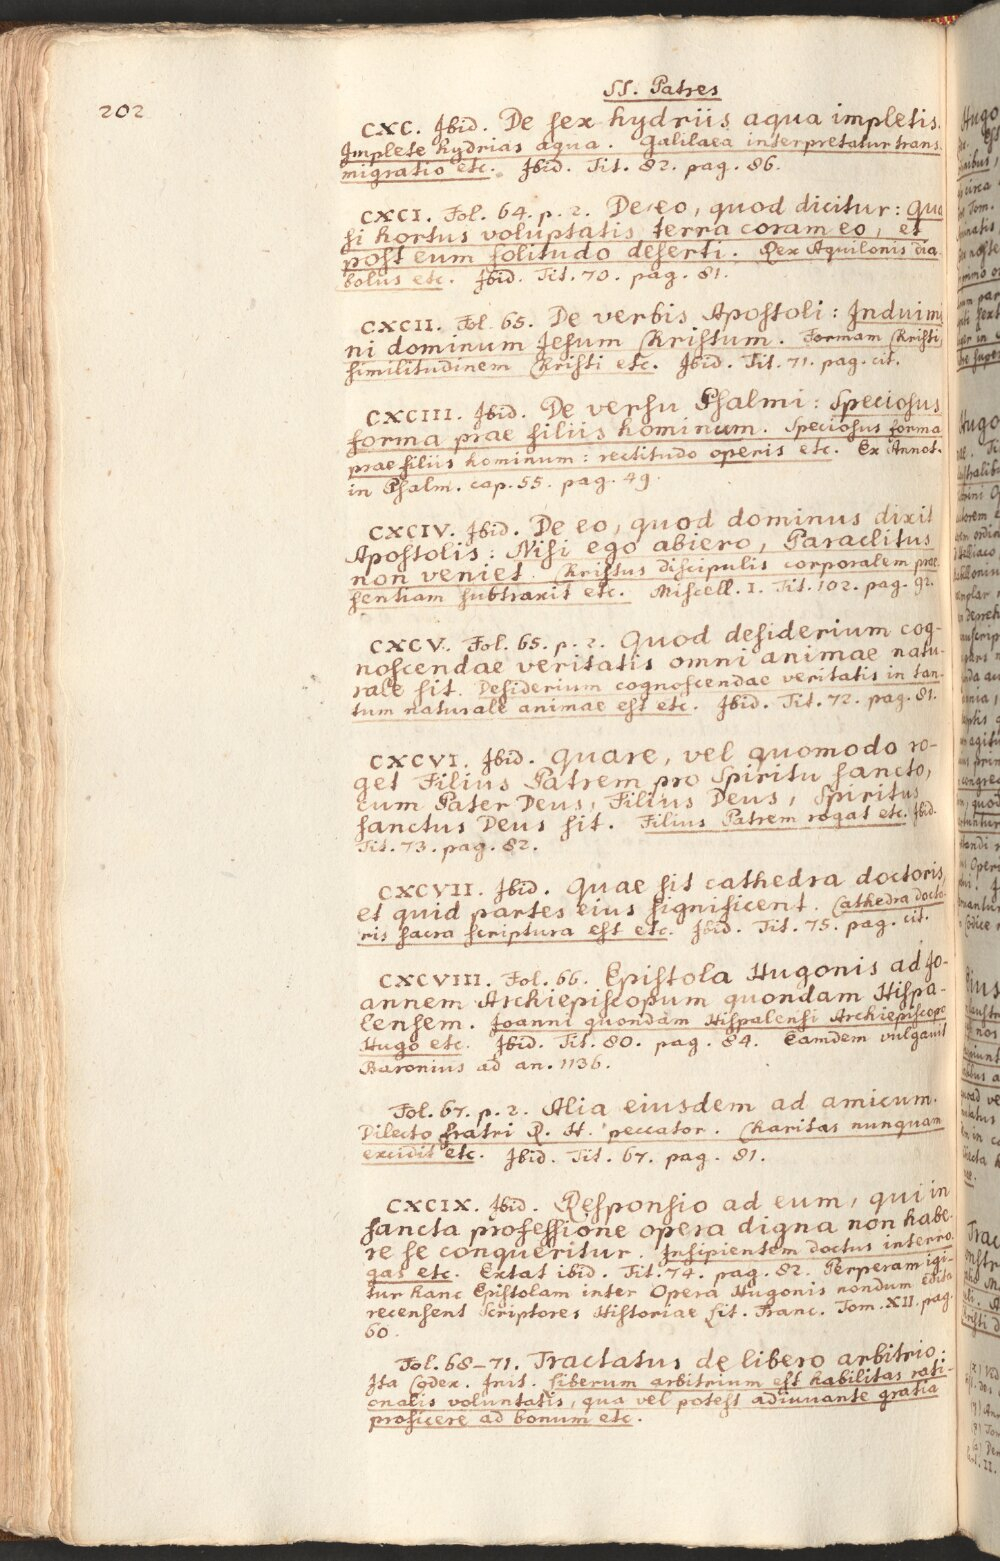 202
SS. Patres
CXC. Ibid. De sex hydriis aqua impletis.
Implete hydrias aqua. Galilaea interpretatur trans-
migratio etc. Ibid. Tit. 82. pag. 86.
CXCI. Fol. 64. p. 2. De eo, quod dicitur: Qua
si hortus voluptatis terra coram eo, et
post eum solitudo deserti. Rex Aquilonis dia-
bolus etc. Ibid. Tit. 70. pag. 81.
CXCII. Fol. 65. De verbis Apostoli: Induimi
ni dominum Jesum Christum. Formam Christi,
similitudinem Christi etc. Ibid. Tit. 71. pag. cit.
CXCIII. Ibid. De versu Psalmi: Speciosus
forma prae filiis hominum. Speciosus forma
prae filiis hominum: rectitudo operis etc. Ex Annot.
in Psalm. cap. 55. pag. 49.
CXCIV. Ibid. De eo, quod dominus dixit
Apostolis: Nisi ego abiero, Paraclitus
non veniet. Christus discipulis corporalem prae-
sentiam subtraxit etc. Miscell. I. Tit. 102. pag. 92.
CXCV. Fol. 65. p. 2. Quod desiderium cog-
noscendae veritatis omni animae natu-
rale sit. Desiderium cognoscendae veritatis in tan-
tum naturale animae est etc. Ibid. Tit. 72. pag. 81.
CXCVI. Ibid. Quare, vel quomodo ro-
get Filius Patrem pro Spiritu sancto,
cum Pater Deus, Filius Deus, Spiritus
sanctus Deus sit. Filius Patrem rogat etc. Ibid.
Tit. 73. pag. 82.
CXCVII. Ibid. Quae sit cathedra doctoris,
et quid partes eius significent. Cathedra docto-
ris sacra scriptura est etc. Ibid. Tit. 75. pag. cit.
CXCVIII. Fol. 66. Epistola Hugonis ad Jo-
annem Archiepiscopum quondam Hispa-
lensem. Joanni quondam Hispalensi Archiepiscopo
Hugo etc. Ibid. Tit. 80. pag. 84. Eamdem vulgavit
Baronius ad an. 1136.
Fol. 67. p. 2. Alia eiusdem ad amicum.
Dilecto fratri R. H. peccator. Charitas nunquam
excidit etc. Ibid. Tit. 67. pag. 81.
CXCIX. Ibid. Responsio ad eum, qui in
sancta professione opera digna non habe-
re se conqueritur. Insipientem doctus interro-
gas etc. Extat ibid. Tit. 74. pag. 82. Perperam igi-
tur hanc Epistolam inter Opera Hugonis nondum edita
recensent Scriptores Historiae Lit. Franc. Tom. XII. pag.
60.
Fol. 68-71. Tractatus de libero arbitrio:
Ita Codex. Init. Liberum arbitrium est habilitas rati-
onalis voluntatis, qua vel potest adiuuante gratia
proficere ad bonum etc.